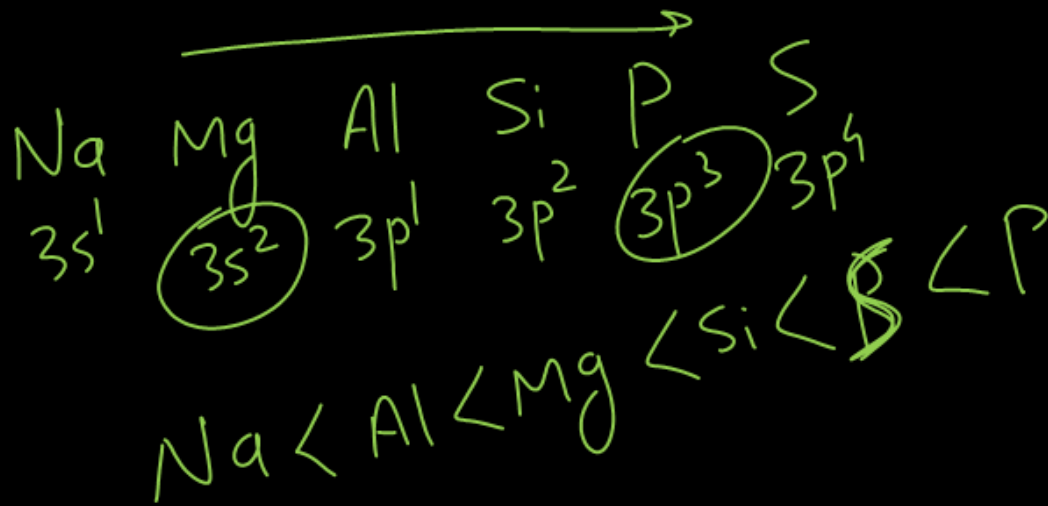 Na Mg Al Si P S
3s¹ 3s² 3p¹ 3p² 3p³ 3p⁴
Na < Al < Mg < Si < S < P